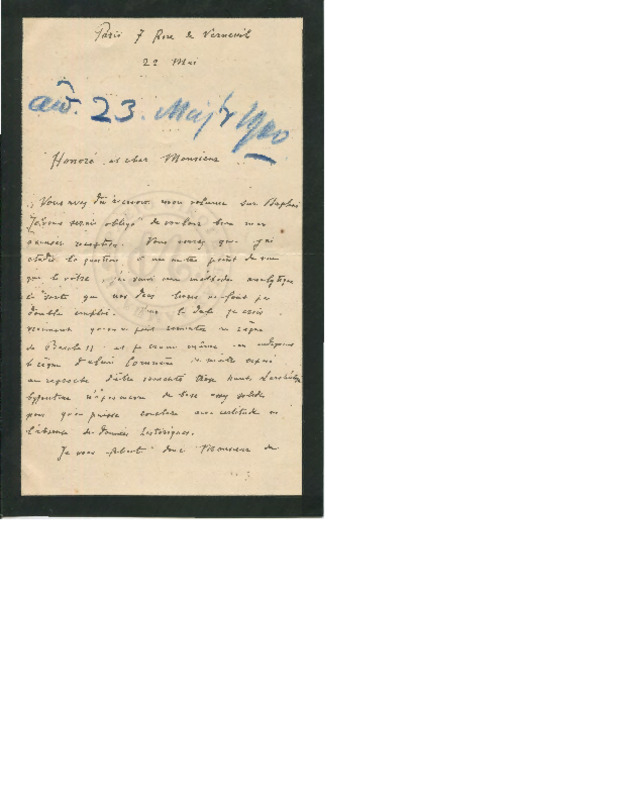 Paris 7 Rue de Verneuil
22 Mai
23. Mai 1900
Honoré et cher Monsieur
Vous avez dû recevoir mon volume sur Daphni
Je vous serais obligé de vouloir bien m'en
réception. Vous verrez que j'ai
étudié la question à un autre point de vue
que le vôtre, j'ai suivi une méthode analytique
de sorte que nos deux livres ne font pas
double emploi. la date je crois
vraiment qu'on ne peut remonter au règne
de Basile II et je crois même en
le règne d'Alexis Comnène
au reproche d'être remonté trop haut. L'archéologie
byzantine n'a pas encore de base assez solide
pour qu'on puisse conclure avec certitude en
l'absence de données historiques.
Je vous donc Monsieur de